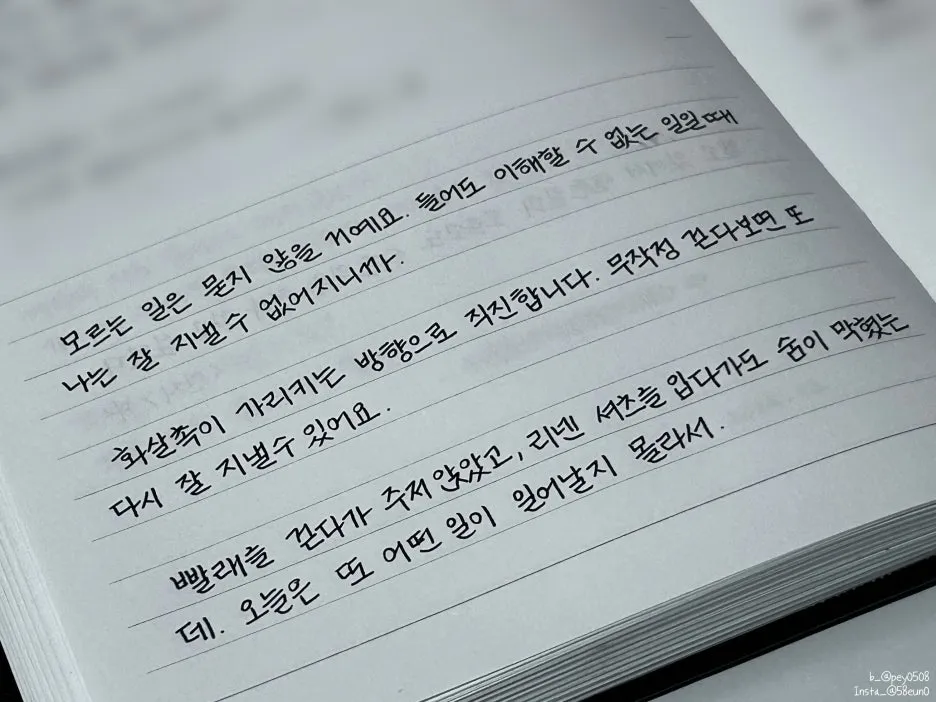 모르는 일은 묻지 않을 거예요. 들어도 이해할 수 없는 일일때
나는 잘 지낼 수 없어지니까.
화살촉이 가리키는 방향으로 직진합니다. 무작정 걷다보면 또
다시 잘 지낼수 있어요.
빨래를 걷다가 주저 앉았고, 리넨 셔츠를 입다가도 숨이 막혔는
데. 오늘은 또 어떤 일이 일어날지 몰라서.
b_@pey0508
Insta_@58eun0